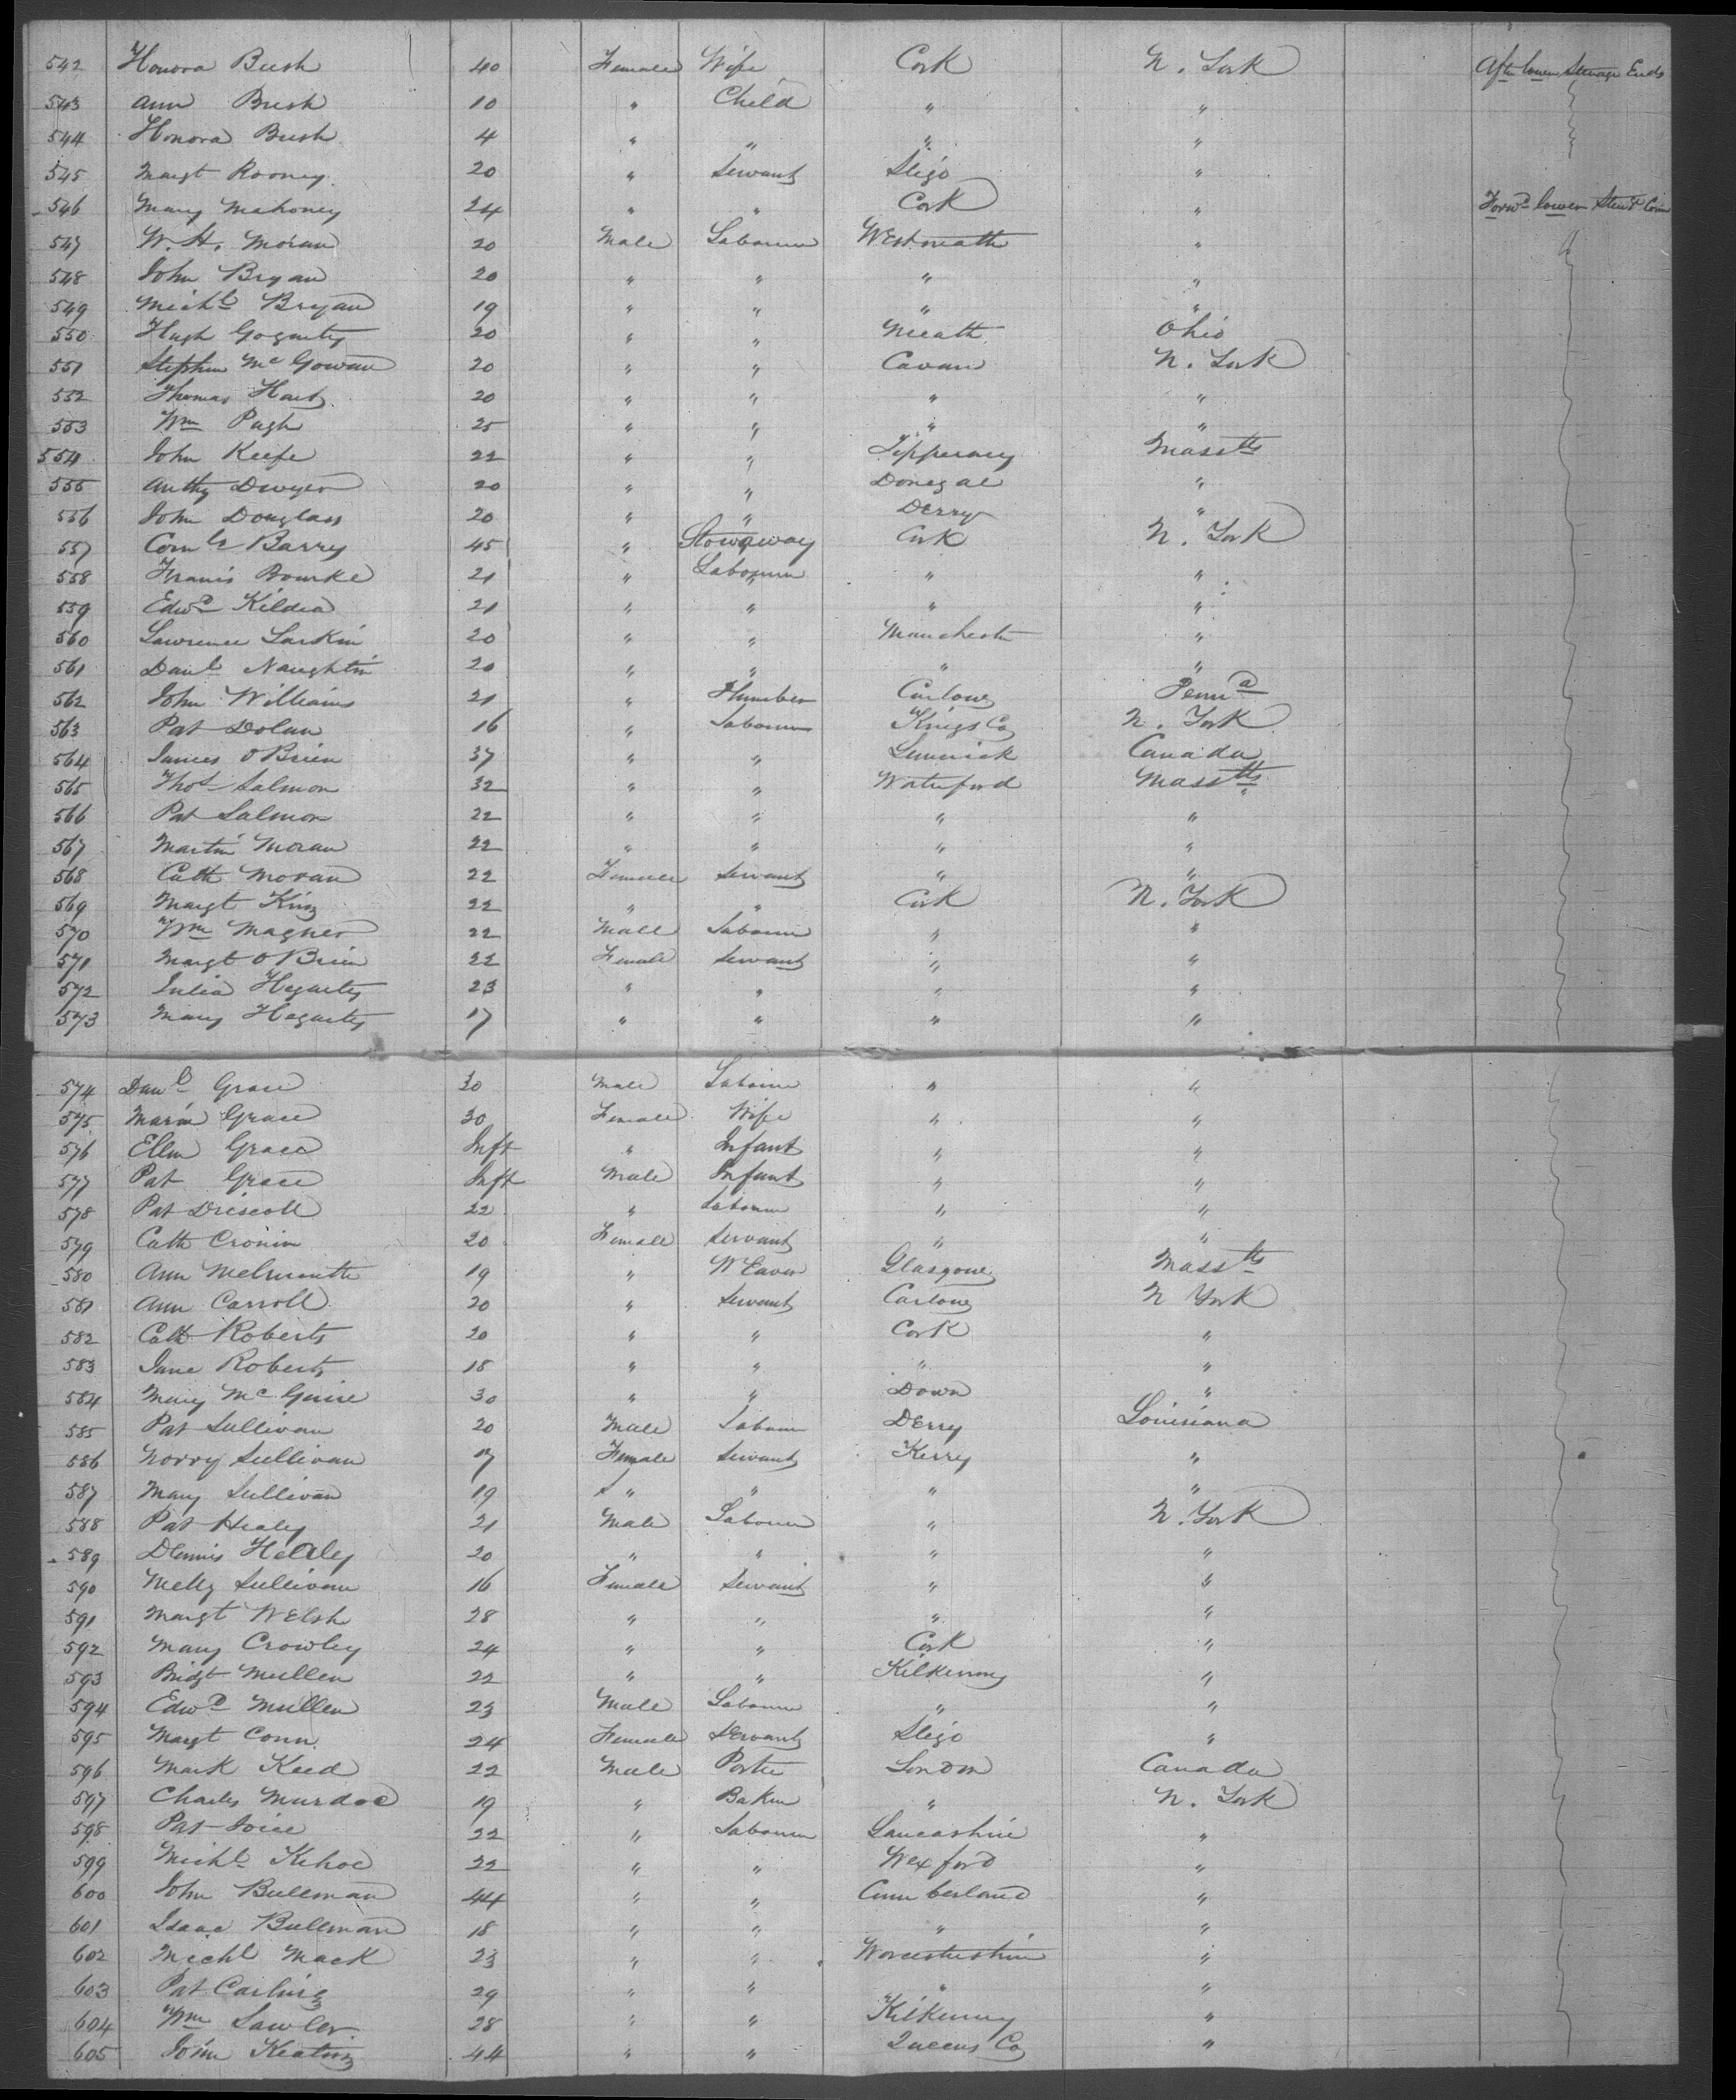 542 Honora Bush 40 Female Wife Cork N. York After lower Steerage Ends
543 Ann Bush 10 " Child " "
544 Honora Bush 4 " " " "
545 Margt Rooney 20 " Servant Sligo "
546 Mary Mahoney 24 " " Cork " Forwd lower Steer
547 W. H. Moran 20 Male Labourer Westmeath "
548 John Bryan 20 " " " "
549 Michl Bryan 19 " " " "
550 Hugh Gogarty 20 " " Meath Ohio
551 Stephen McGowan 20 " " Cavan N. York
552 Thomas Harty 20 " " " "
553 Wm Pugh 25 " " " "
554 John Keefe 22 " " Tipperary Masstts
555 Anthy Dwyer 20 " " Donegal "
556 John Douglass 20 " " Derry "
557 Cornls Barry 45 " Stowaway Cork N. York
558 Franis Bourke 21 " Labourer " "
559 Edwd Kildea 21 " " " "
560 Lawrence Larkin 20 " " Manchester "
561 Danl Naughtin 20 " " " "
562 John Williams 21 " Plumber Carlow Penna
563 Pat Dolan 16 " Labourer Kings Co N. York
564 James O Brien 37 " " Limerick Canada
565 Thos Salmon 32 " " Waterford Masstts
566 Pat Salmon 22 " " " "
567 Martin Moran 22 " " " "
568 Cath Moran 22 Female Servant " "
569 Margt King 22 " " Cork N. York
570 Wm Magner 22 Male Labourer " "
571 Margt O Brien 22 Female Servant " "
572 Julia Hegarty 23 " " " "
573 Mary Hegarty 17 " " " "
574 Danl Grace 30 Male Labourer " "
575 Maria Grace 30 Female Wife " "
576 Ellen Grace Inft " Infant " "
577 Pat Grace Inft Male Infant " "
578 Pat Driscoll 22 " Labourer " "
579 Cath Cronin 20 Female Servant " "
580 Ann 19 " Weaver Glasgow Masstts
581 Ann Carroll 20 " Servant Carlow N York
582 Cath Roberts 20 " " Cork "
583 Jane Roberts 18 " " " "
584 Mary McGuire 30 " " Down "
585 Pat Sullivan 20 Male Labourer Derry Louisiana
586 Norry Sullivan 17 Female Servant Kerry "
587 Mary Sullivan 19 " " " "
588 Pat Healy 21 Male Labourer " N. York
589 Dennis Healey 20 " " " "
590 Nelly Sullivan 16 Female Servant " "
591 Margt Welsh 28 " " " "
592 Mary Crowley 24 " " Cork "
593 Bridgt Mullen 22 " " Kilkenny "
594 Edwd Mullen 23 Male Labourer " "
595 Margt Conn 24 Female Servant Sligo "
596 Mark Keed 22 Male Porter London Canada
597 Charles Murdoc 19 " Baker " N. York
598 Pat Joice 22 " Labourer Lancashire "
599 Michl Kehoe 22 " " Wexford "
600 John Bullman 44 " " Cumberland "
601 Isaac Bullman 18 " " " "
602 Michl Mack 23 " " Worcestershire "
603 Pat Carling 29 " " " "
604 Wm Lawler 28 " " Kilkenny "
605 John Keating 44 " " Queens Co "